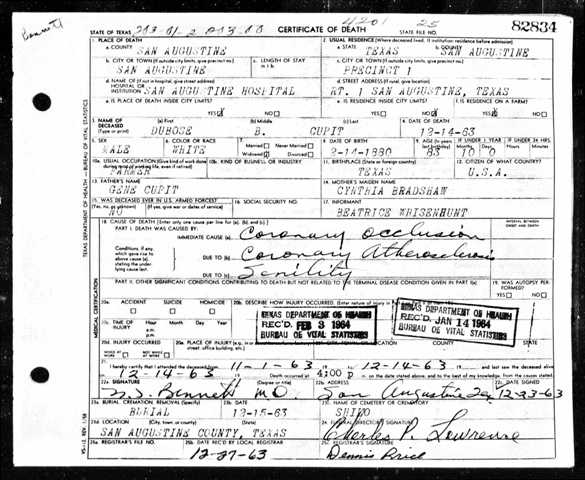 Bennett
4201 25
STATE OF TEXAS 203-01-2 203-00 CERTIFICATE OF DEATH STATE FILE NO. 82834
1. PLACE OF DEATH 2. USUAL RESIDENCE (Where deceased lived. If institution: residence before admission)
a. COUNTY SAN AUGUSTINE a. STATE TEXAS b. COUNTY SAN AUGUSTINE
b. CITY OR TOWN (If outside city limits, give precinct no.) c. LENGTH OF STAY c. CITY OR TOWN (If outside city limits, give precinct no.)
SAN AUGUSTINE PRECINCT 1
d. NAME OF (If not in hospital, give street address) HOSPITAL OR INSTITUTION SAN AUGUSTINE HOSPITAL d. STREET ADDRESS (If rural, give location) RT. 1 SAN AUGUSTINE, TEXAS
e. IS PLACE OF DEATH INSIDE CITY LIMITS? YES NO e. IS RESIDENCE INSIDE CITY LIMITS? YES NO f. IS RESIDENCE ON A FARM? YES NO
3. NAME OF DECEASED (Type or print) (a) First (b) Middle (c) Last 4. DATE OF DEATH
DUBOSE B. CUPIT 12-14-63
5. SEX 6. COLOR OR RACE 7. Married Never Married Widowed Divorced 8. DATE OF BIRTH 9. AGE IF UNDER 1 YEAR IF UNDER 24 HRS
MALE WHITE 2-14-1880 83 10 0
10a. USUAL OCCUPATION (Give kind of work done 10b. KIND OF BUSINESS OR INDUSTRY 11. BIRTHPLACE 12. CITIZEN OF WHAT COUNTRY?
FARMER TEXAS U.S.A.
13. FATHER'S NAME 14. MOTHER'S MAIDEN NAME
GENE CUPIT CYNTHIA BRADSHAW
15. WAS DECEASED EVER IN U.S. ARMED FORCES? 16. SOCIAL SECURITY NO. 17. INFORMANT
NO BEATRICE WHISENHUNT
18. CAUSE OF DEATH (Enter only one cause per line for (a), (b), and (c).) INTERVAL BETWEEN ONSET AND DEATH
PART I. DEATH WAS CAUSED BY:
IMMEDIATE CAUSE (a) Coronary Occlusion
Conditions, if any, which gave rise to above cause (a), stating the underlying cause last. DUE TO (b) Coronary Atherosclerosis
DUE TO (c) Senility
PART II. OTHER SIGNIFICANT CONDITIONS CONTRIBUTING TO DEATH BUT NOT RELATED TO THE TERMINAL DISEASE CONDITION GIVEN IN PART I(a) 19. WAS AUTOPSY PERFORMED? YES NO
20a. ACCIDENT SUICIDE HOMICIDE 20b. DESCRIBE HOW INJURY OCCURRED.
TEXAS DEPARTMENT OF HEALTH
REC'D. FEB 3 1964
BUREAU OF VITAL STATISTICS
TEXAS DEPARTMENT OF HEALTH
REC'D JAN 14 1964
BUREAU OF VITAL STATISTICS
20c. TIME OF INJURY Hour Month Day Year a.m. p.m.
20d. INJURY OCCURRED WHILE AT WORK NOT WHILE AT WORK 20e. PLACE OF INJURY
21. I hereby certify that I attended the deceased from 11-1-63 to 12-14-63 and last saw the deceased alive
12-14-63 Death occurred at 4:00 P m. on the date stated above, and to the best of my knowledge, from the causes stated.
22a. SIGNATURE (Degree or title) 22b. ADDRESS 22c. DATE SIGNED
Bennett M.D. San Augustine Tex 12-23-63
23a. BURIAL, CREMATION, REMOVAL (Specify) 23b. DATE 23c. NAME OF CEMETERY OR CREMATORY
BURIAL 12-15-63 SHILO
23d. LOCATION (City, town, or county) (State) 24. FUNERAL DIRECTOR'S SIGNATURE
SAN AUGUSTINE COUNTY, TEXAS Charles P. Lawrence
25a. REGISTRAR'S FILE NO. 25b. DATE REC'D BY LOCAL REGISTRAR 25c. REGISTRAR'S SIGNATURE
12-27-63 Dennis Price
TEXAS DEPARTMENT OF HEALTH — BUREAU OF VITAL STATISTICS
MEDICAL CERTIFICATION